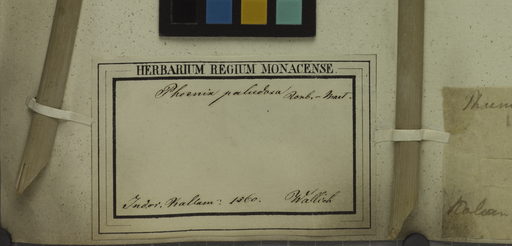 HERBARIUM REGIUM MONACENSE
Phoenix paludosa Roxb. – Mart.
Indor. 1860. Wallich